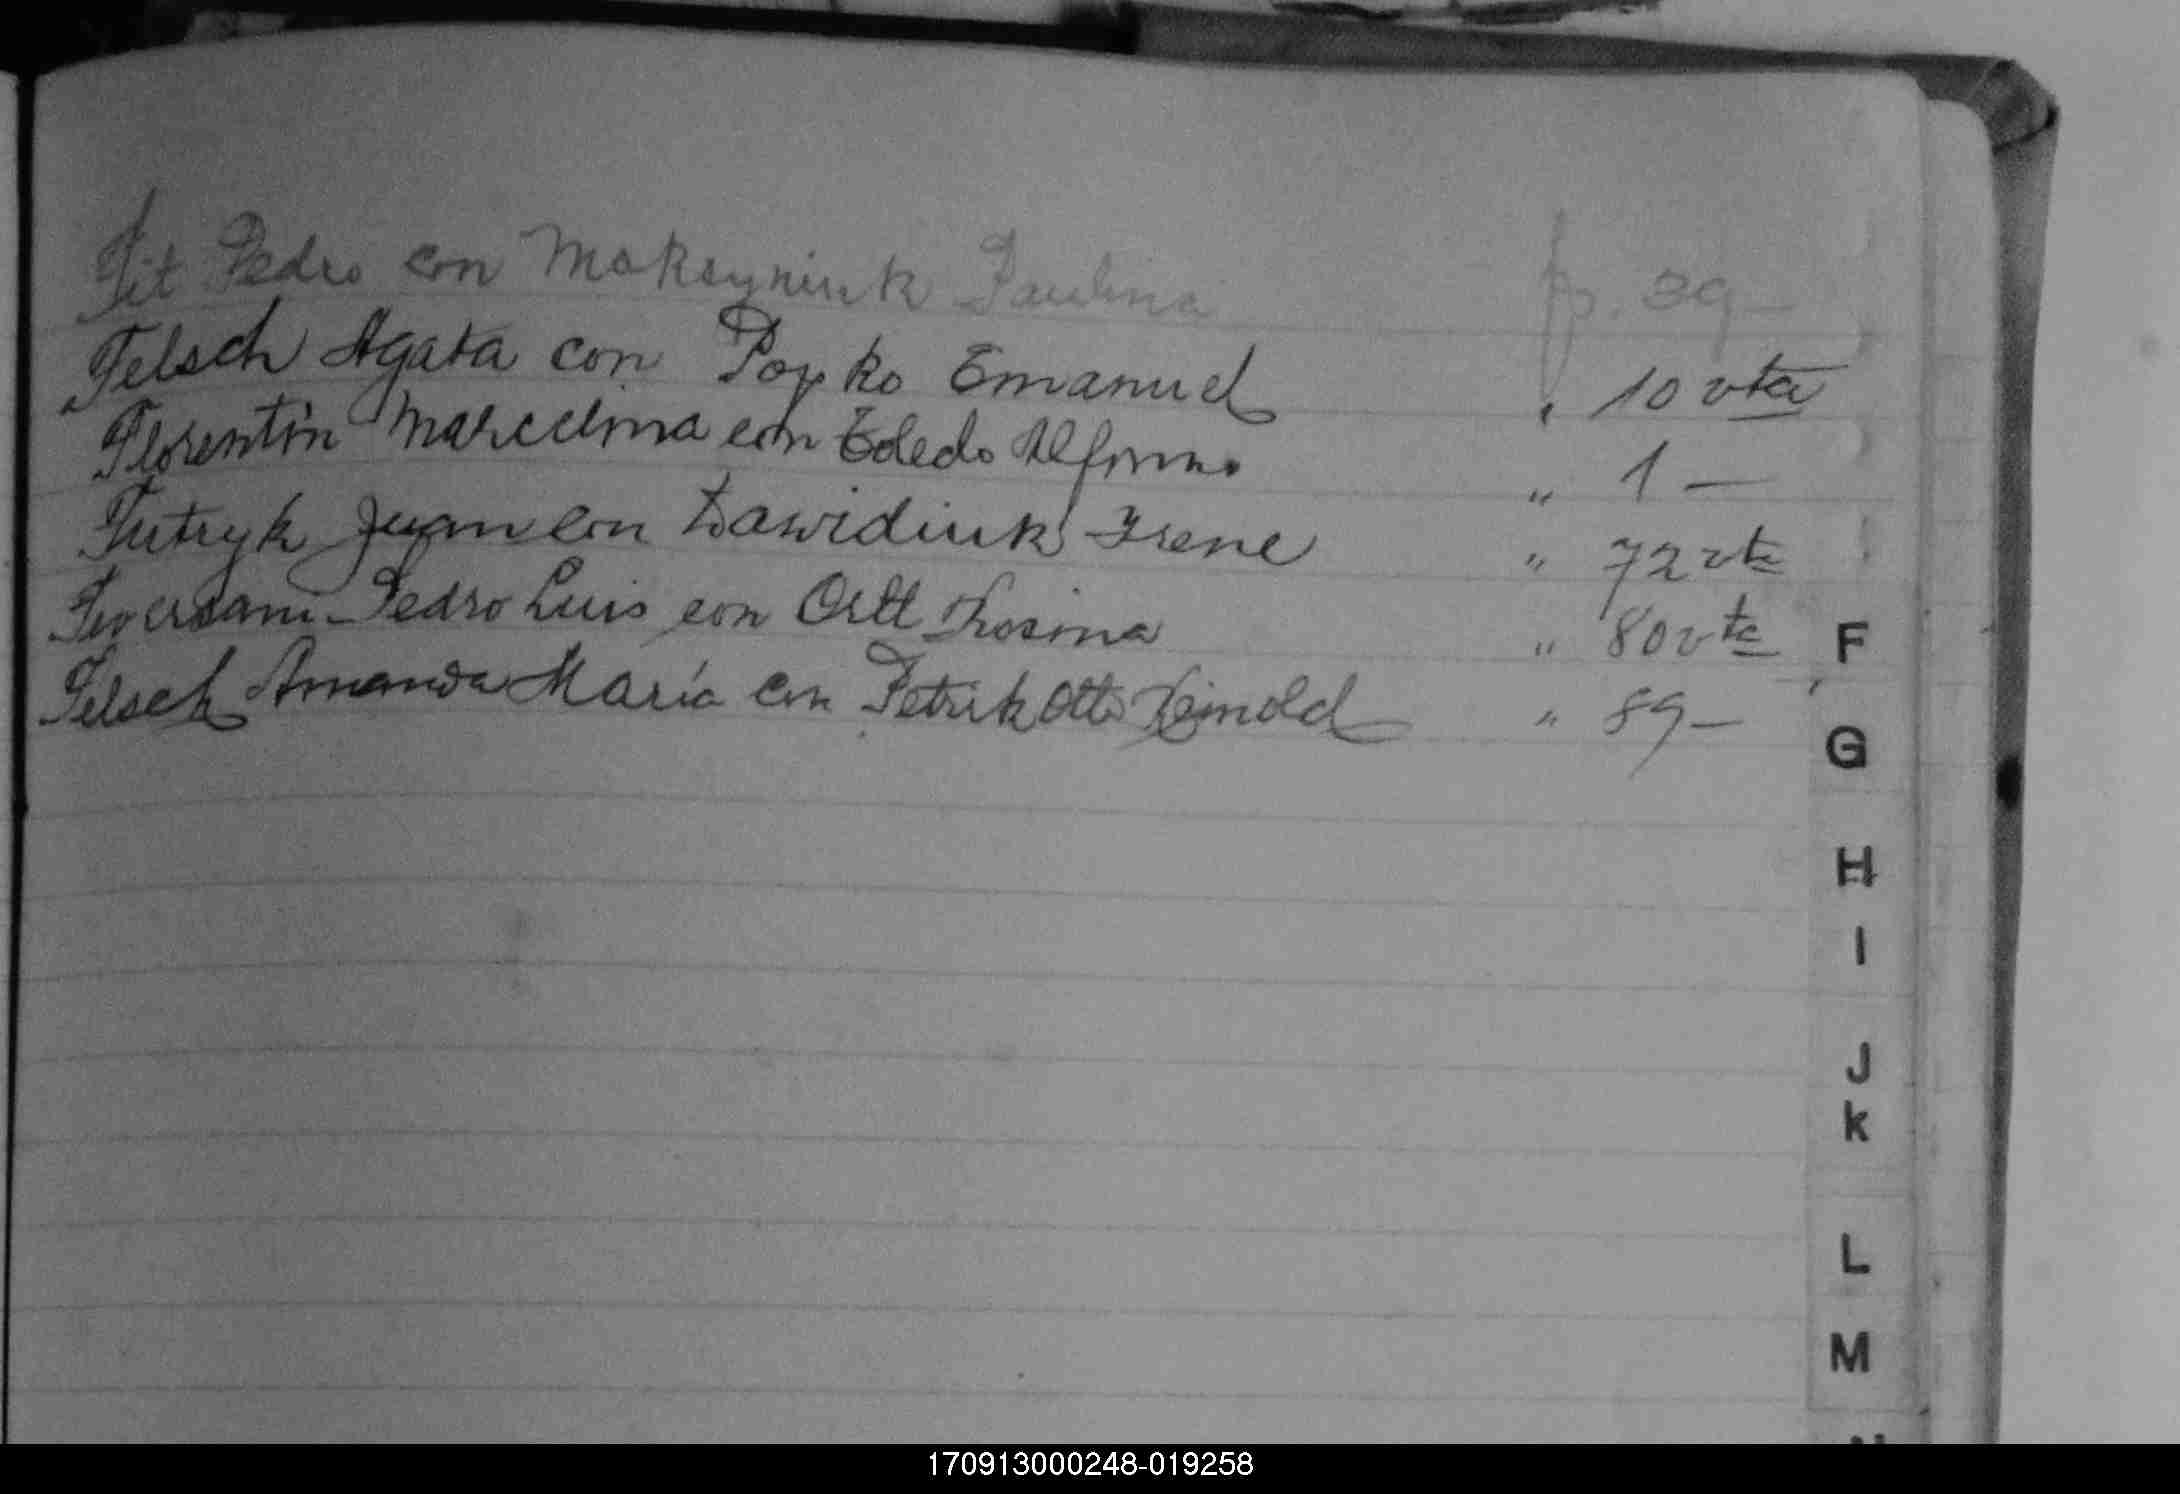 Fit Pedro con Maksyniuk Paulina fs. 39 —
Felsch Agata con Popko Emanuel " 10 vta
Florentín Marcelina con Toledo Alfonso " 1 —
Futryk Juan con Dawidiuk Irene " 72 vta
Pedro Luis con Ortt Rosina " 80 vta
Felsch Amanda María con Petrik Otto Reinold " 89 —
F
G
H
I
J
k
L
M
170913000248-019258